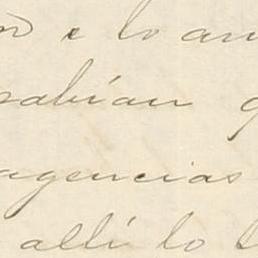 e lo an
sabían q
agencias
allí lo